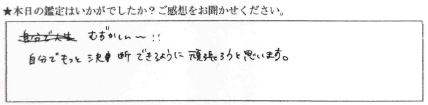 ★本日の鑑定はいかがでしたか？ご感想をお聞かせください。
自分で人生 むずかしい〜!!
自分でもっと決断できるように頑張ろうと思います。